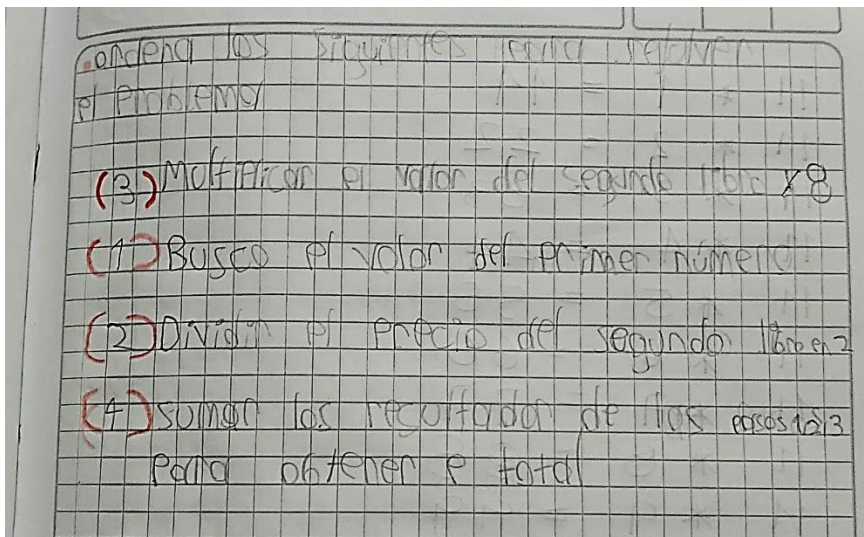 .ordena los siguientes para resolver
el problema
(3) Multiplicar el valor del segundo libro x8
(1) Busco el valor del primer número
(2) Dividir el precio del segundo libro en 2
(4) sumar los resultador de los pasos 1 a 3
para obtener e total